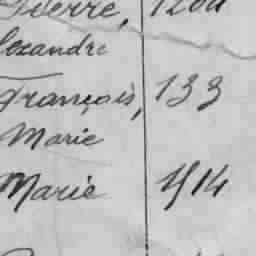 Pierre,
lexandre
François, 133
Marie
Marie 1514